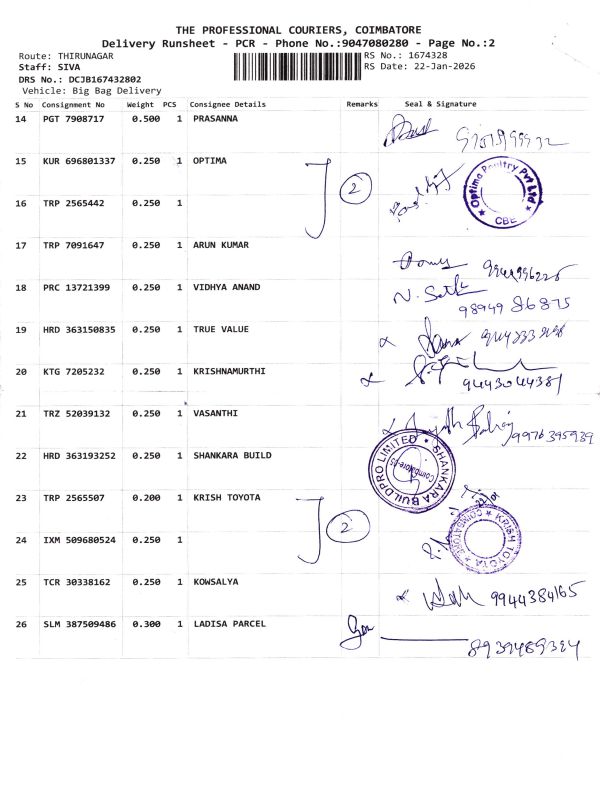 THE PROFESSIONAL COURIERS, COIMBATORE
Delivery Runsheet - PCR - Phone No.:9047080280 - Page No.:2
Route: THIRUNAGAR RS No.: 1674328
Staff: SIVA RS Date: 22-Jan-2026
DRS No.: DCJB167432802
Vehicle: Big Bag Delivery
S No Consignment No Weight PCS Consignee Details Remarks Seal & Signature
14 PGT 7908717 0.500 1 PRASANNA
15 KUR 696801337 0.250 1 OPTIMA 2 Optima Poultry Pvt Ltd CBE
16 TRP 2565442 0.250 1
17 TRP 7091647 0.250 1 ARUN KUMAR
18 PRC 13721399 0.250 1 VIDHYA ANAND 98949 86875
19 HRD 363150835 0.250 1 TRUE VALUE
20 KTG 7205232 0.250 1 KRISHNAMURTHI 9443044381
21 TRZ 52039132 0.250 1 VASANTHI 9976395939
22 HRD 363193252 0.250 1 SHANKARA BUILD SHANKARA BUILDPRO LIMITED
23 TRP 2565507 0.200 1 KRISH TOYOTA 2 KRISH TOYOTA COIMBATORE
24 IXM 509680524 0.250 1
25 TCR 30338162 0.250 1 KOWSALYA 9944384165
26 SLM 387509486 0.300 1 LADISA PARCEL